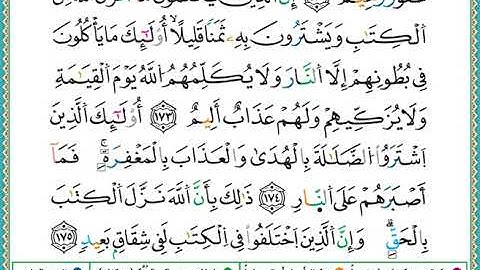 اَلْكِتَٰبِ وَيَشْتَرُونَ بِهِۦ ثَمَنًا قَلِيلًا أُوْلَٰٓئِكَ مَا يَأْكُلُونَ
فِي بُطُونِهِمْ إِلَّا اَلنَّارَ وَلَا يُكَلِّمُهُمُ اُللَّهُ يَوْمَ اَلْقِيَٰمَةِ
وَلَا يُزَكِّيهِمْ وَلَهُمْ عَذَابٌ أَلِيمٌ ١٧٣ أُوْلَٰٓئِكَ اَلَّذِينَ
اَشْتَرَوُاْ اُلضَّلَٰلَةَ بِالْهُدَىٰ وَالْعَذَابَ بِالْمَغْفِرَةِ فَمَآ
أَصْبَرَهُمْ عَلَى اَلنّ۪ارِ ١٧٤ ذَٰلِكَ بِأَنَّ اَللَّهَ نَزَّلَ اَلْكِتَٰبَ
بِالْحَقِّ وَإِنَّ اَلَّذِينَ اَخْتَلَفُواْ فِي اِلْكِتَٰبِ لَفِي شِقَاقٍ بَعِيدٍ ١٧٥